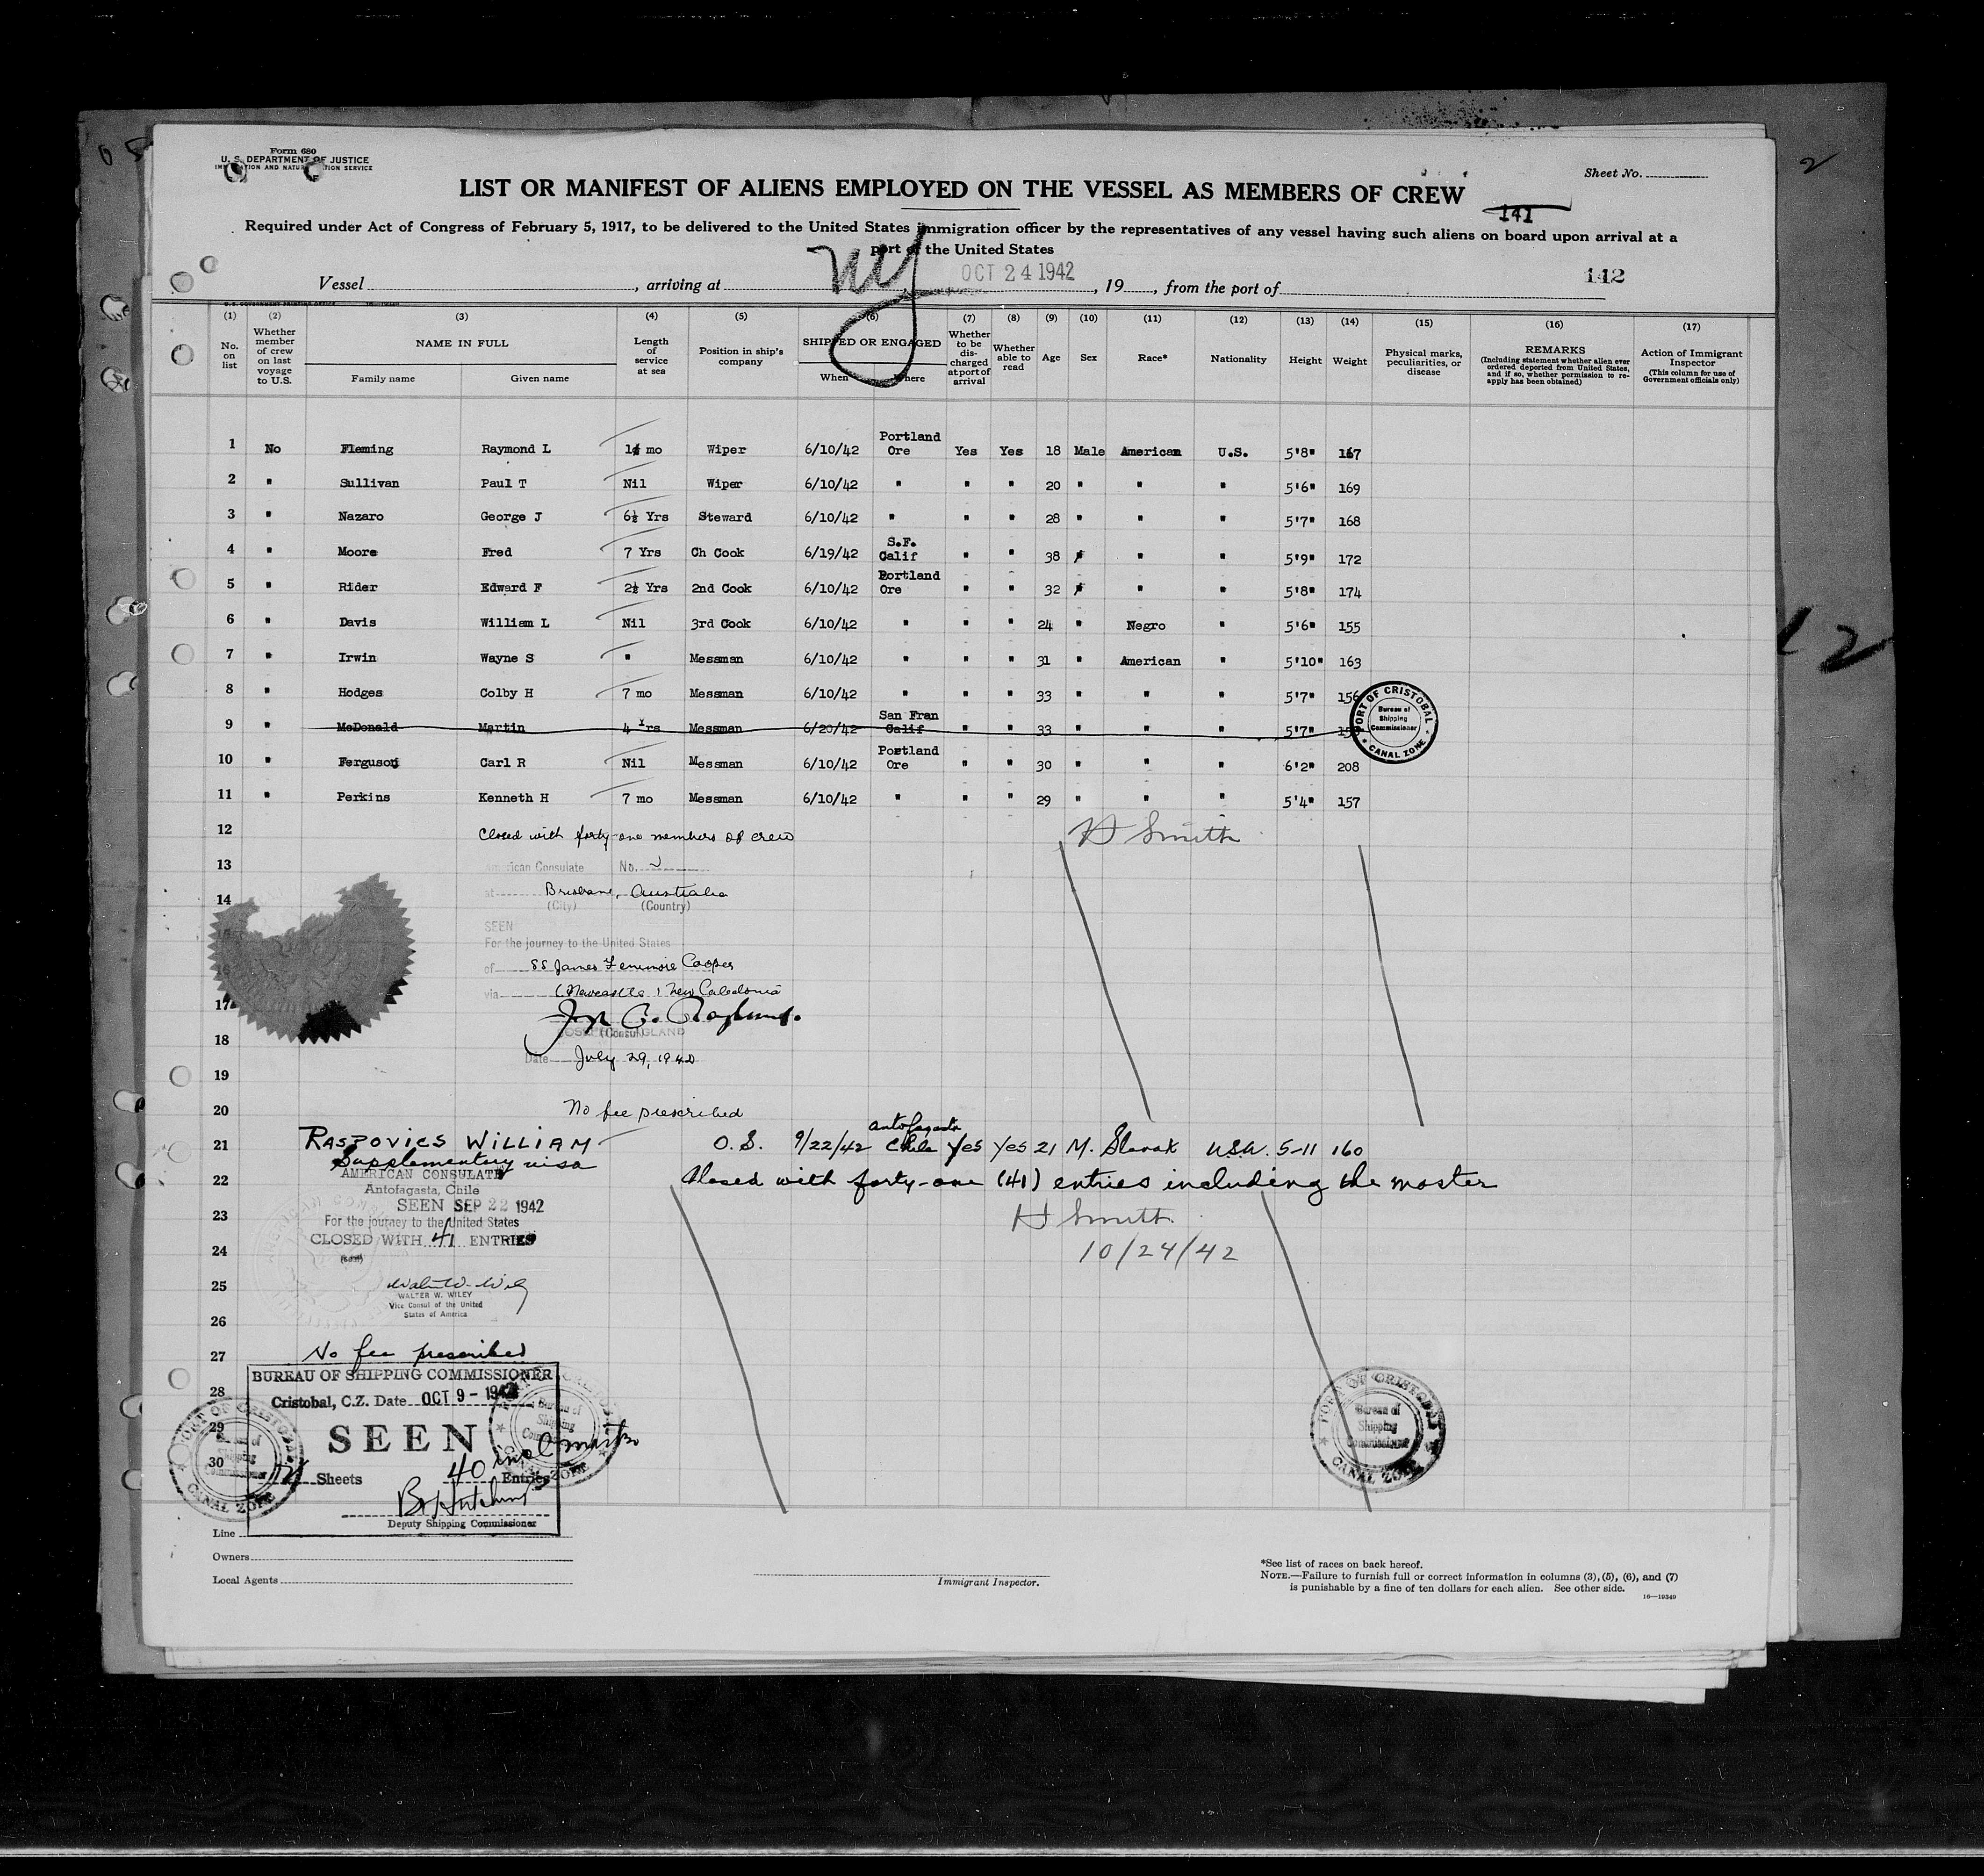 Form 680
U. S. DEPARTMENT OF JUSTICE
Sheet No.
LIST OR MANIFEST OF ALIENS EMPLOYED ON THE VESSEL AS MEMBERS OF CREW
141
Required under Act of Congress of February 5, 1917, to be delivered to the United States immigration officer by the representatives of any vessel having such aliens on board upon arrival at a
port of the United States
Vessel , arriving at NY OCT 24 1942 , 19 , from the port of 142
(1) (2) (3) (4) (5) (6) (7) (8) (9) (10) (11) (12) (13) (14) (15) (16) (17)
No. on list Whether member of crew on last voyage to U.S. NAME IN FULL Family name Given name Length of service at sea Position in ship's company SHIPPED OR ENGAGED When Where Whether to be discharged at port of arrival Whether able to read Age Sex Race* Nationality Height Weight Physical marks, peculiarities, or disease REMARKS (Including statement whether alien ever ordered deported from United States, and if so, whether permission to reapply has been obtained) Action of Immigrant Inspector (This column for use of Government officials only)
1 No Fleming Raymond L mo Wiper 6/10/42 Portland Ore Yes Yes 18 Male American U.S. 5'8" 167
2 " Sullivan Paul T Nil Wiper 6/10/42 " " " 20 " " " 5'6" 169
3 " Nazaro George J 6½ Yrs Steward 6/10/42 " " " 28 " " " 5'7" 168
4 " Moore Fred 7 Yrs Ch Cook 6/19/42 S.F. Calif " " 38 " " " 5'9" 172
5 " Rider Edward F 2½ Yrs 2nd Cook 6/10/42 Portland Ore " " 32 " " " 5'8" 174
6 " Davis William L Nil 3rd Cook 6/10/42 " " " 24 " Negro " 5'6" 155
7 " Irwin Wayne S " Messman 6/10/42 " " " 31 " American " 5'10" 163
8 " Hodges Colby H 7 mo Messman 6/10/42 " " " 33 " " " 5'7" 156
9 " McDonald Martin 4 Yrs Messman 6/20/42 San Fran Calif " " 33 " " " 5'7"
PORT OF CRISTOBAL
Bureau of Shipping Commissioner
CANAL ZONE
10 " Ferguson Carl R Nil Messman 6/10/42 Portland Ore " " 30 " " " 6'2" 208
11 " Perkins Kenneth H 7 mo Messman 6/10/42 " " " 29 " " " 5'4" 157
12 Closed with forty-one members of crew H Smith
13 American Consulate No.
14 at Brisbane, Australia
(City) (Country)
SEEN
For the journey to the United States
of SS James Fenimore Cooper
via (Newcastle) New Caledonia
17
(Consul)
18
Date July 29, 1942
19
20 No fee prescribed
21 RASPOVICS WILLIAM O.S. 9/22/42 Antofagasta Chile Yes Yes 21 M. Slovak USA. 5-11 160
Supplementary visa
22 Closed with forty-one (41) entries including the master
AMERICAN CONSULATE
Antofagasta, Chile
SEEN SEP 22 1942
23 H Smith
For the journey to the United States
CLOSED WITH 41 ENTRIES
24 10/24/42
25
WALTER W. WILEY
Vice Consul of the United
States of America
26
27 No fee prescribed
BUREAU OF SHIPPING COMMISSIONER
28 Cristobal, C.Z. Date OCT 9 - 1942
29 SEEN
30 Sheets 40 incl master Entries
Deputy Shipping Commissioner
PORT OF CRISTOBAL
Bureau of Shipping Commissioner
CANAL ZONE
Line
Owners
Local Agents
Immigrant Inspector.
*See list of races on back hereof.
NOTE.—Failure to furnish full or correct information in columns (3), (5), (6), and (7)
is punishable by a fine of ten dollars for each alien. See other side.
16—19340